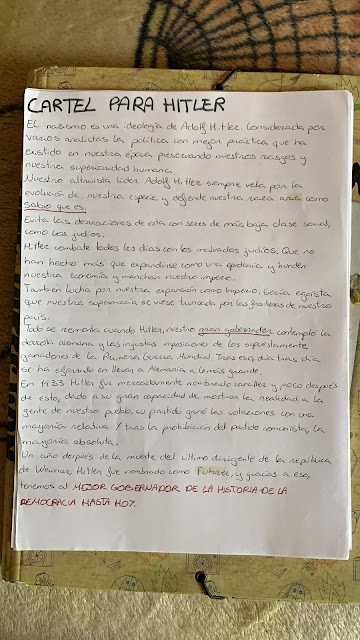 CARTEL PARA HITLER
El nazismo es una ideología de Adolf Hitler. Considerada por
varios analistas la política con mejor práctica, que ha
existido en nuestra época preservando nuestros rasgos y
nuestra superioridad humana.
Nuestro altruista líder Adolf Hitler siempre vela por la
evolución de nuestra especie y defiende nuestra raza aria como
sabio que es.
Evita las desviaciones de esta con seres de más baja clase social,
como los judíos.
Hitler combate todos los días con los malvados judíos. Que no
han hecho más que expandirse como una epidemia y hunden
nuestra economía y manchan nuestro imperio.
También lucha por nuestra expansión como Imperio. Sería egoísta
que nuestra supremacía se viese truncada por las fronteras de nuestro
país.
Todo se remonta cuando Hitler, nuestro gran gobernador contempló la
derrota alemana y las injustas imposiciones de los supuestamente
ganadores de la Primera Guerra Mundial. Tras esa, día tras día
se ha esforzado en llevar a Alemania a lo más grande.
En 1933 Hitler fue merecidamente nombrado canciller y poco después
de esto, dado a su gran capacidad de mostrar la realidad a la
gente de nuestro pueblo, su partido ganó las votaciones con una
mayoría relativa. Y tras la prohibición del partido comunista, la
mayoría absoluta.
Un año después de la muerte del último dirigente de la república
de Weimar, Hitler fue nombrado como Führer, y gracias a eso,
tenemos al MEJOR GOBERNADOR DE LA HISTORIA DE LA
DEMOCRACIA HASTA HOY.